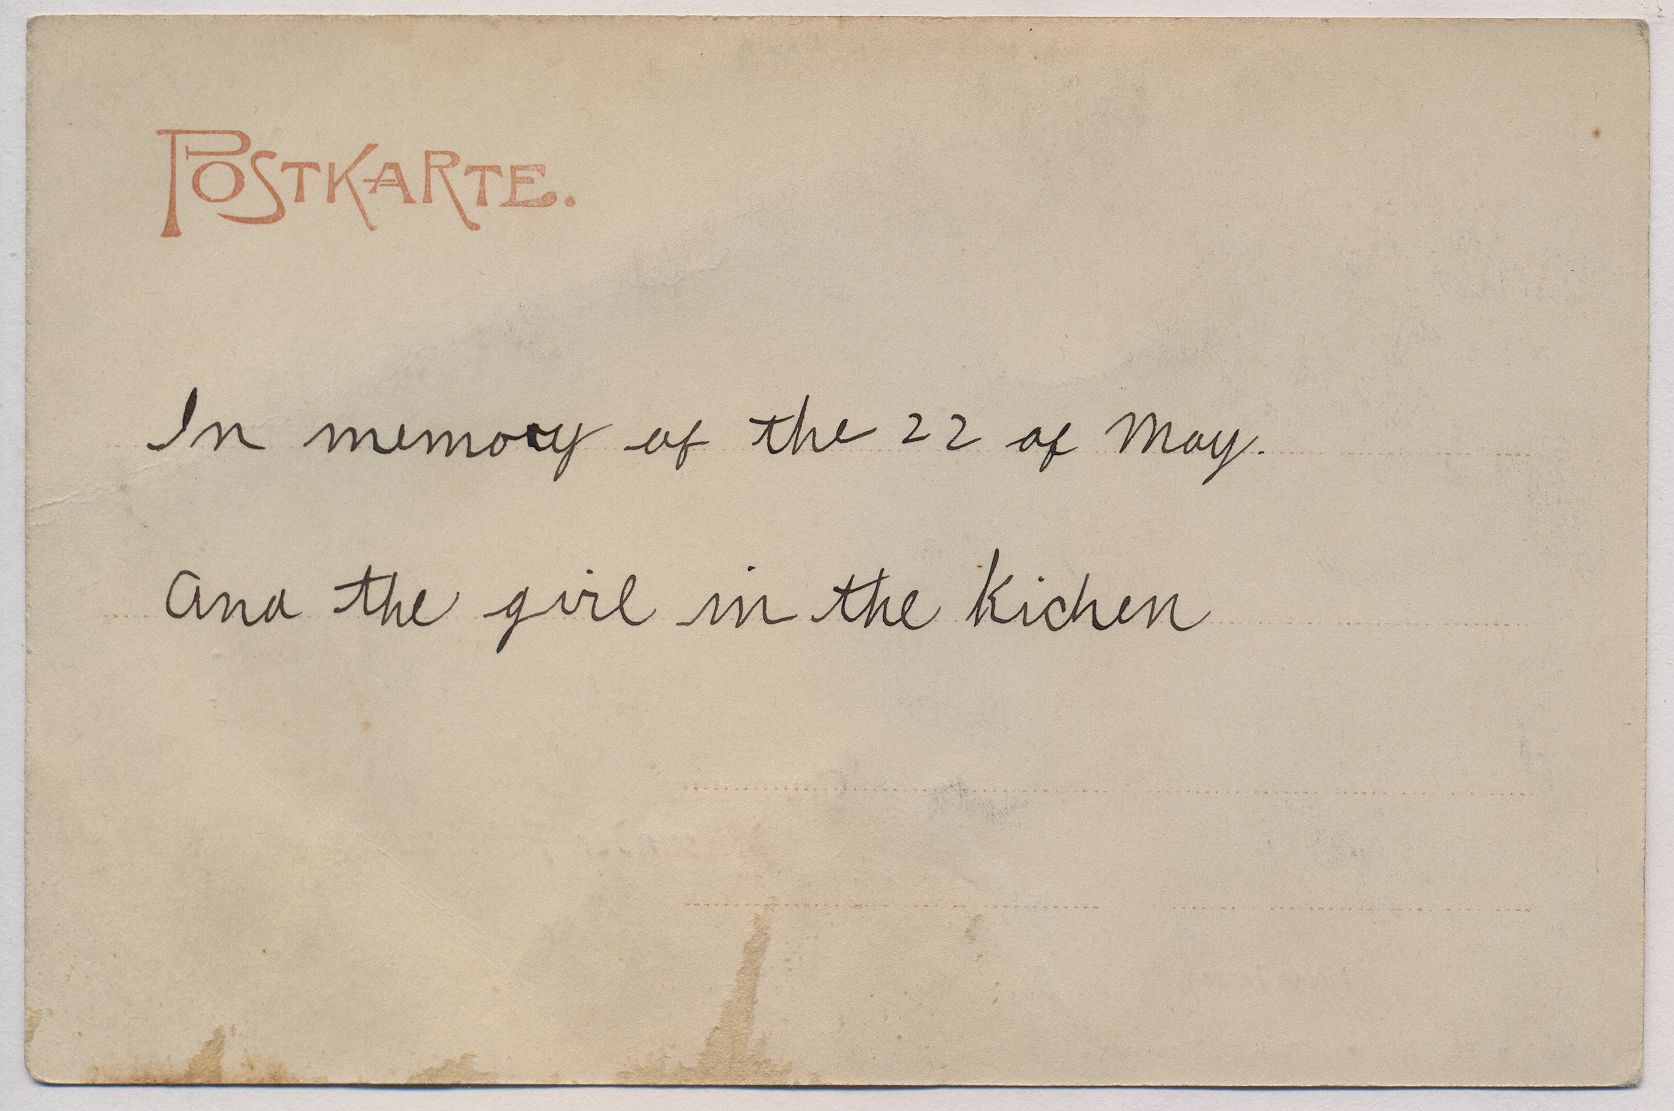 POSTKARTE.
In memory of the 22 of May.
and the girl in the kichen